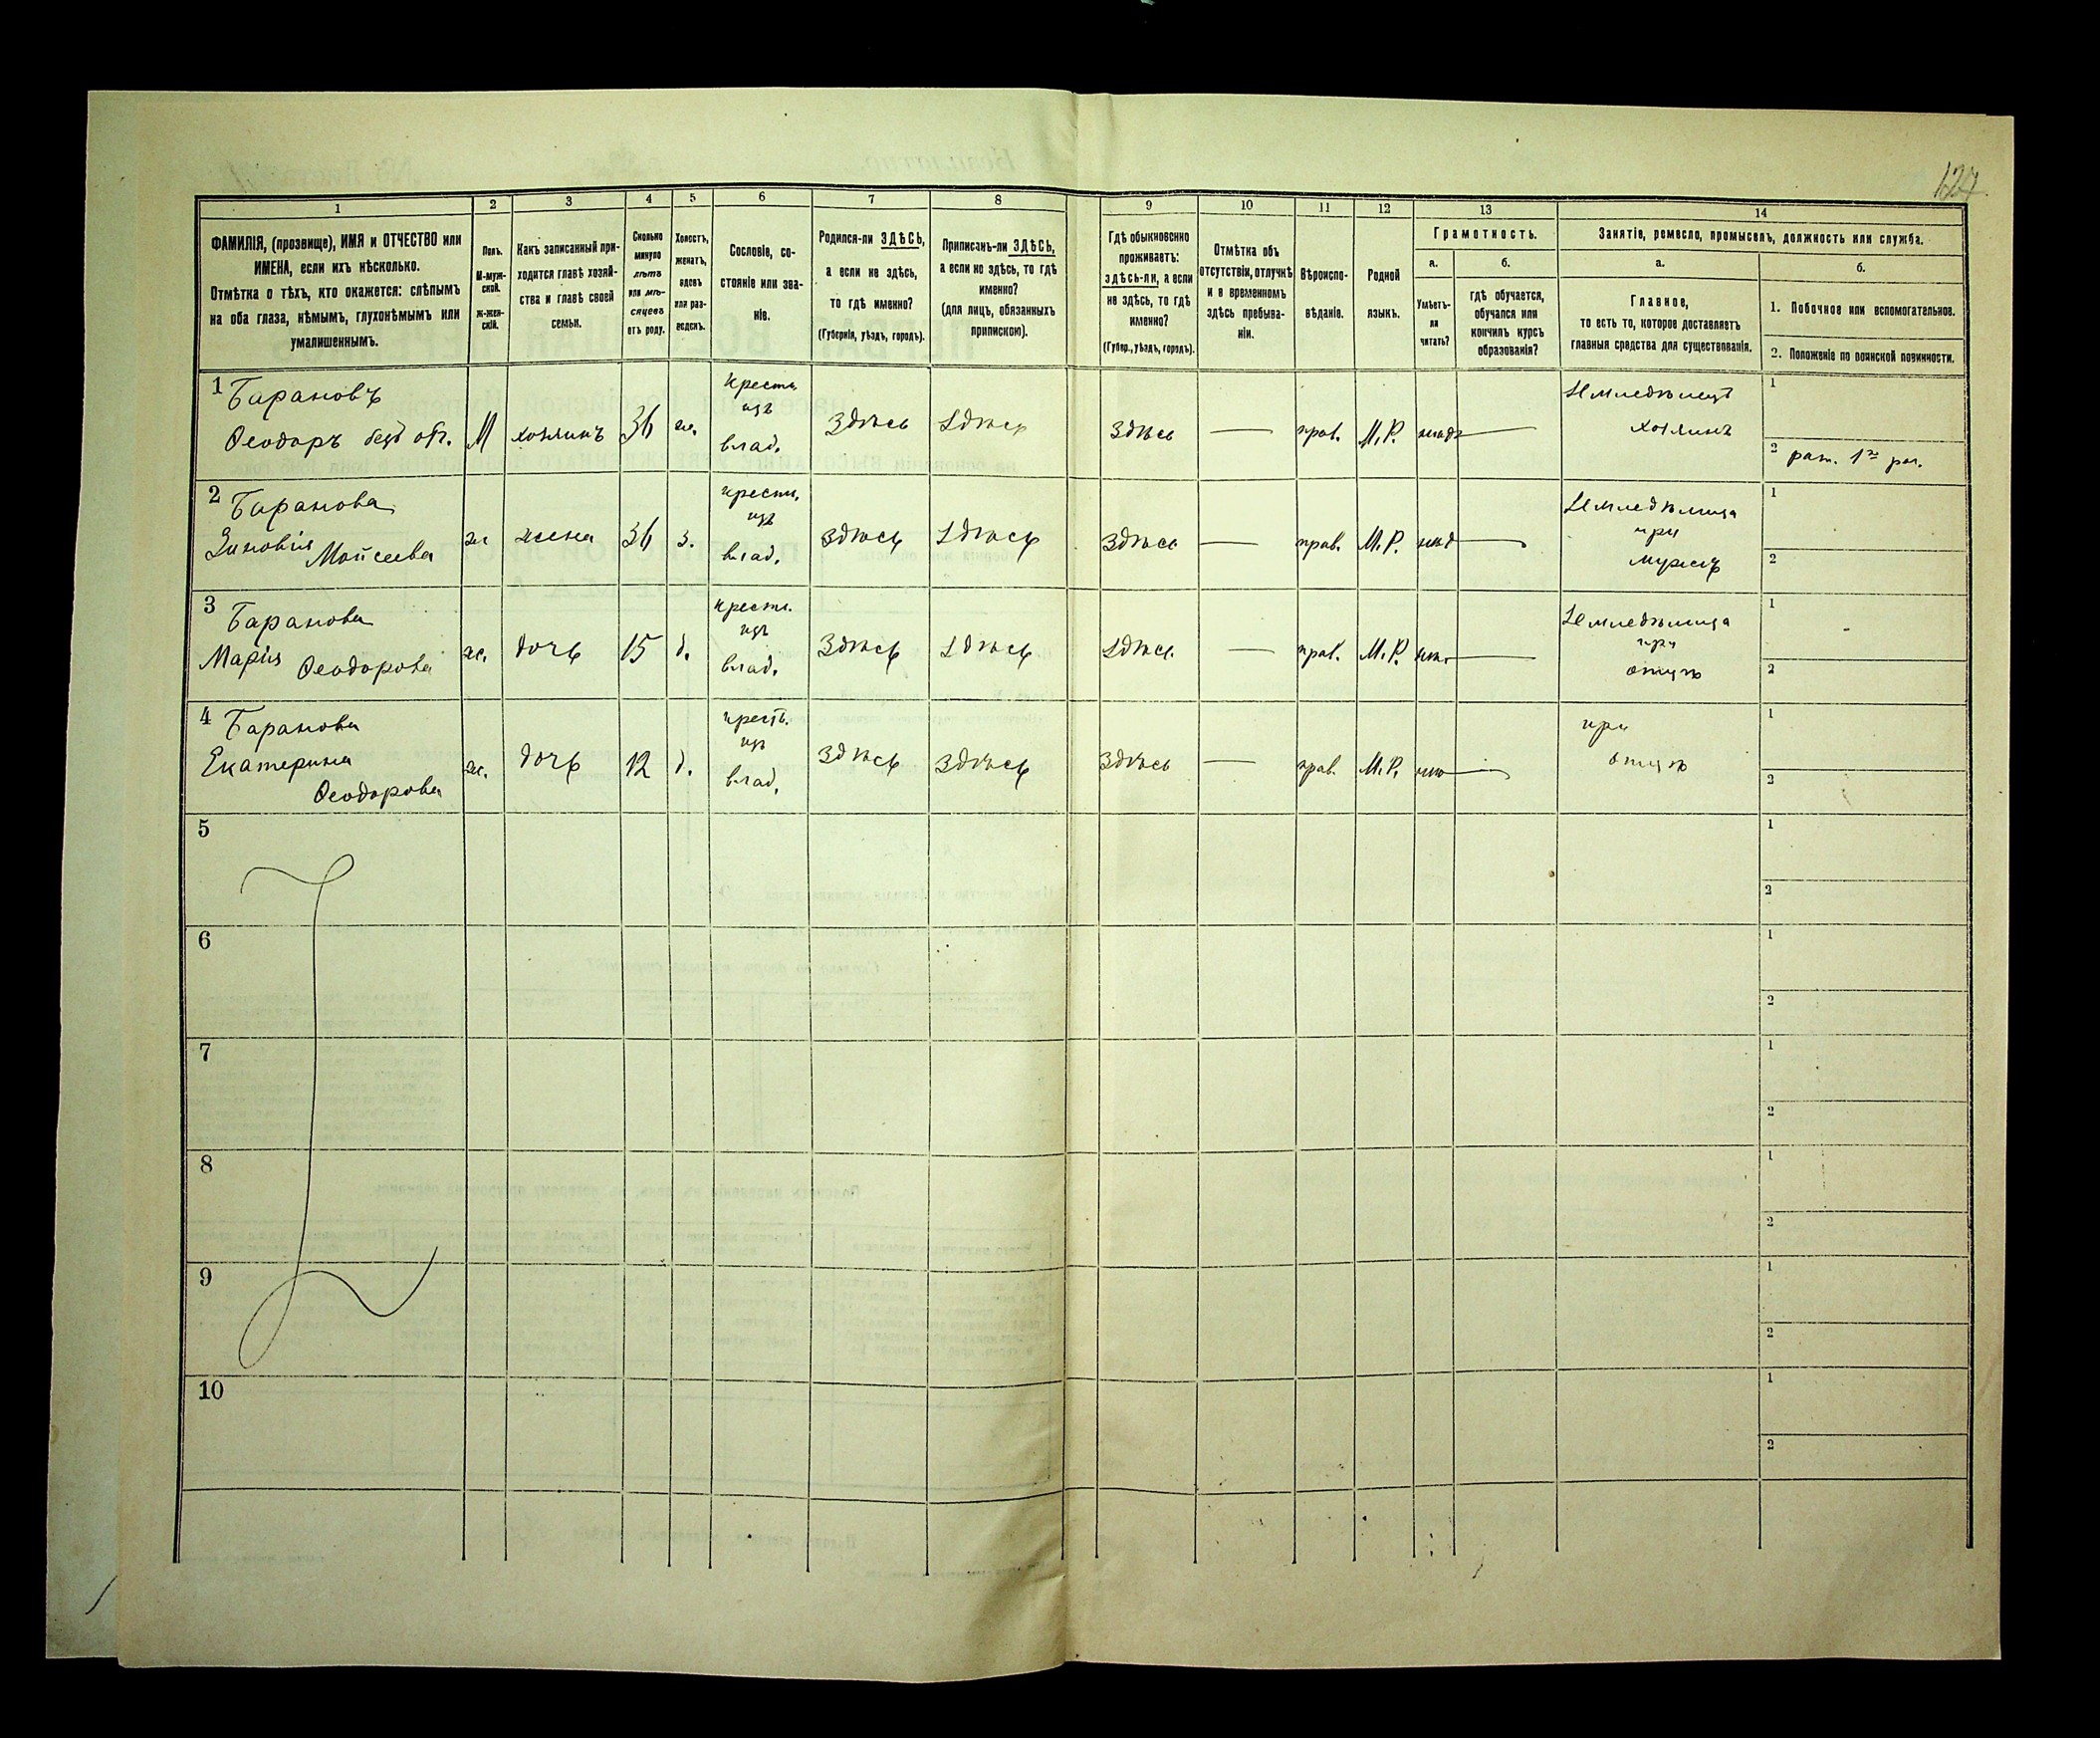 127
1 2 3 4 5 6 7 8 9 10 11 12 13 14
ФАМИЛІЯ, (прозвище), ИМЯ и ОТЧЕСТВО или
ИМЕНА, если ихъ нѣсколько.
Отмѣтка о тѣхъ, кто окажется: слѣпымъ
на оба глаза, нѣмымъ, глухонѣмымъ или
умалишеннымъ.
Полъ.
М-муж-
ской.
Ж-жен-
скій.
Какъ записанный при-
ходится главѣ хозяй-
ства и главѣ своей
семьи.
Сколько
минуло
лѣтъ
или мѣ-
сяцевъ
отъ роду.
Холостъ,
женатъ,
вдовъ
или раз-
веденъ.
Сословіе, со-
стояніе или зва-
ніе.
Родился-ли ЗДѢСЬ,
а если не здѣсь,
то гдѣ именно?
(Губернія, уѣздъ, городъ).
Приписанъ-ли ЗДѢСЬ,
а если не здѣсь, то гдѣ
именно?
(для лицъ, обязанныхъ
припискою).
Гдѣ обыкновенно
проживаетъ:
здѣсь-ли, а если
не здѣсь, то гдѣ
именно?
(Губер., уѣздъ, городъ).
Отмѣтка объ
отсутствіи, отлучкѣ
и о временномъ
здѣсь пребыва-
ніи.
Вѣроиспо-
вѣданіе.
Родной
языкъ.
Грамотность.
а.
Умѣетъ-
ли
читать?
б.
гдѣ обучается,
обучался или
кончилъ курсъ
образованія?
Занятіе, ремесло, промыселъ, должность или служба.
а.
Главное,
то есть то, которое доставляетъ
главныя средства для существованія.
б.
1. Побочное или вспомогательное.
2. Положеніе по воинской повинности.
1 Барановъ
Ѳеодоръ М хозяинъ 36 ж.
крест.
изъ
влад.
Здѣсь Здѣсь Здѣсь — прав. М.Р. —
Земледѣлецъ
хозяинъ
1
2 рат. 1го раз.
2 Баранова
Зиновія
Мойсеева ж жена 36 з.
крест.
изъ
влад.
здѣсь Здѣсь Здѣсь — прав. М.Р. —
Земледѣлица
при
мужѣ
1
2
3 Баранова
Марія Ѳеодорова ж. дочь 15 д.
крест.
изъ
влад.
Здѣсь Здѣсь Здѣсь — прав. М.Р. —
Земледѣлица
при
отцѣ
1
2
4 Баранова
Екатерина
Ѳеодорова ж. дочь 12 д.
крест.
изъ
влад.
Здѣсь Здѣсь Здѣсь — прав. М.Р. —
при
отцѣ
1
2
5
1
2
6
1
2
7
1
2
8
1
2
9
1
2
10
1
2